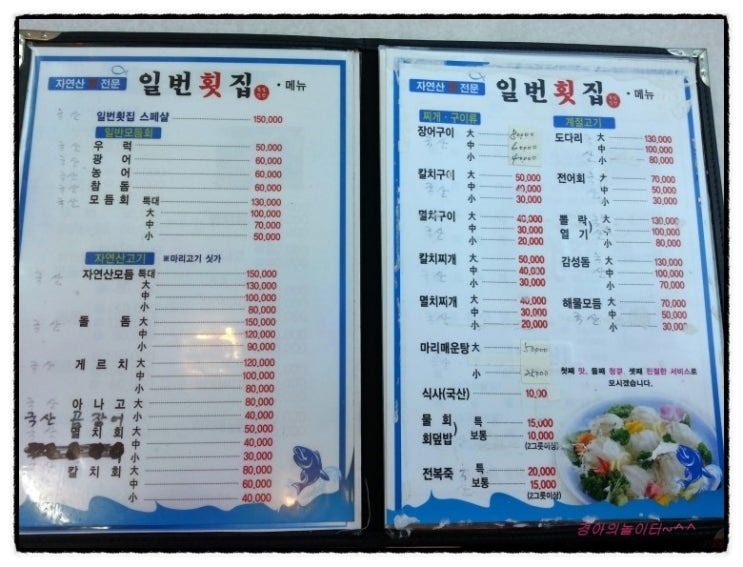 자연산 회 전문 일번횟집 • 메뉴
국산 일번횟집 스페샬 150,000
일반모듬회
국산 우럭 50,000
국산 광어 60,000
국산 농어 60,000
국산 참돔 60,000
국산 모듬회 특대 130,000
大 100,000
中 70,000
小 50,000
자연산고기 ※마리고기 싯가
국산 자연산모듬 특대 150,000
大 130,000
中 100,000
小 80,000
국산 돌돔 大 150,000
中 120,000
小 90,000
국산 게르치 大 120,000
中 100,000
小 80,000
아나고 大 80,000
국산 곰장어 小 40,000
멸치회 大 40,000
小 30,000
갈치회 大 80,000
中 60,000
小 40,000
자연산 회 전문 일번횟집 • 메뉴
찌개 · 구이류
장어구이 大 80000
국산 中 60000
小 40000
갈치구이 大 50,000
국산 中 40,000
小 30,000
멸치구이 大 40,000
국산 中 30,000
小 20,000
갈치찌개 大 50,000
국산 中 40,000
小 30,000
멸치찌개 大 40,000
국산 中 30,000
小 20,000
마리매운탕 大 50000
小
식사(국산) 10,00
물회 특 15,000
회덮밥 보통 10,000
(2그릇이상)
전복죽 특 20,000
국산 보통 15,000
(2그릇이상)
계절고기
도다리 大 130,000
국산 中 100,000
小 80,000
전어회 大 70,000
국산 中 50,000
小 30,000
뽈락 大 130,000
열기 中 100,000
小 80,000
감성돔 大 130,000
국산 中 100,000
小 70,000
해물모듬 大 70,000
국산 中 50,000
小 30,000
첫째 맛, 둘째 청결, 셋째 친절한 서비스로
모시겠습니다.
경아의놀이터~^^